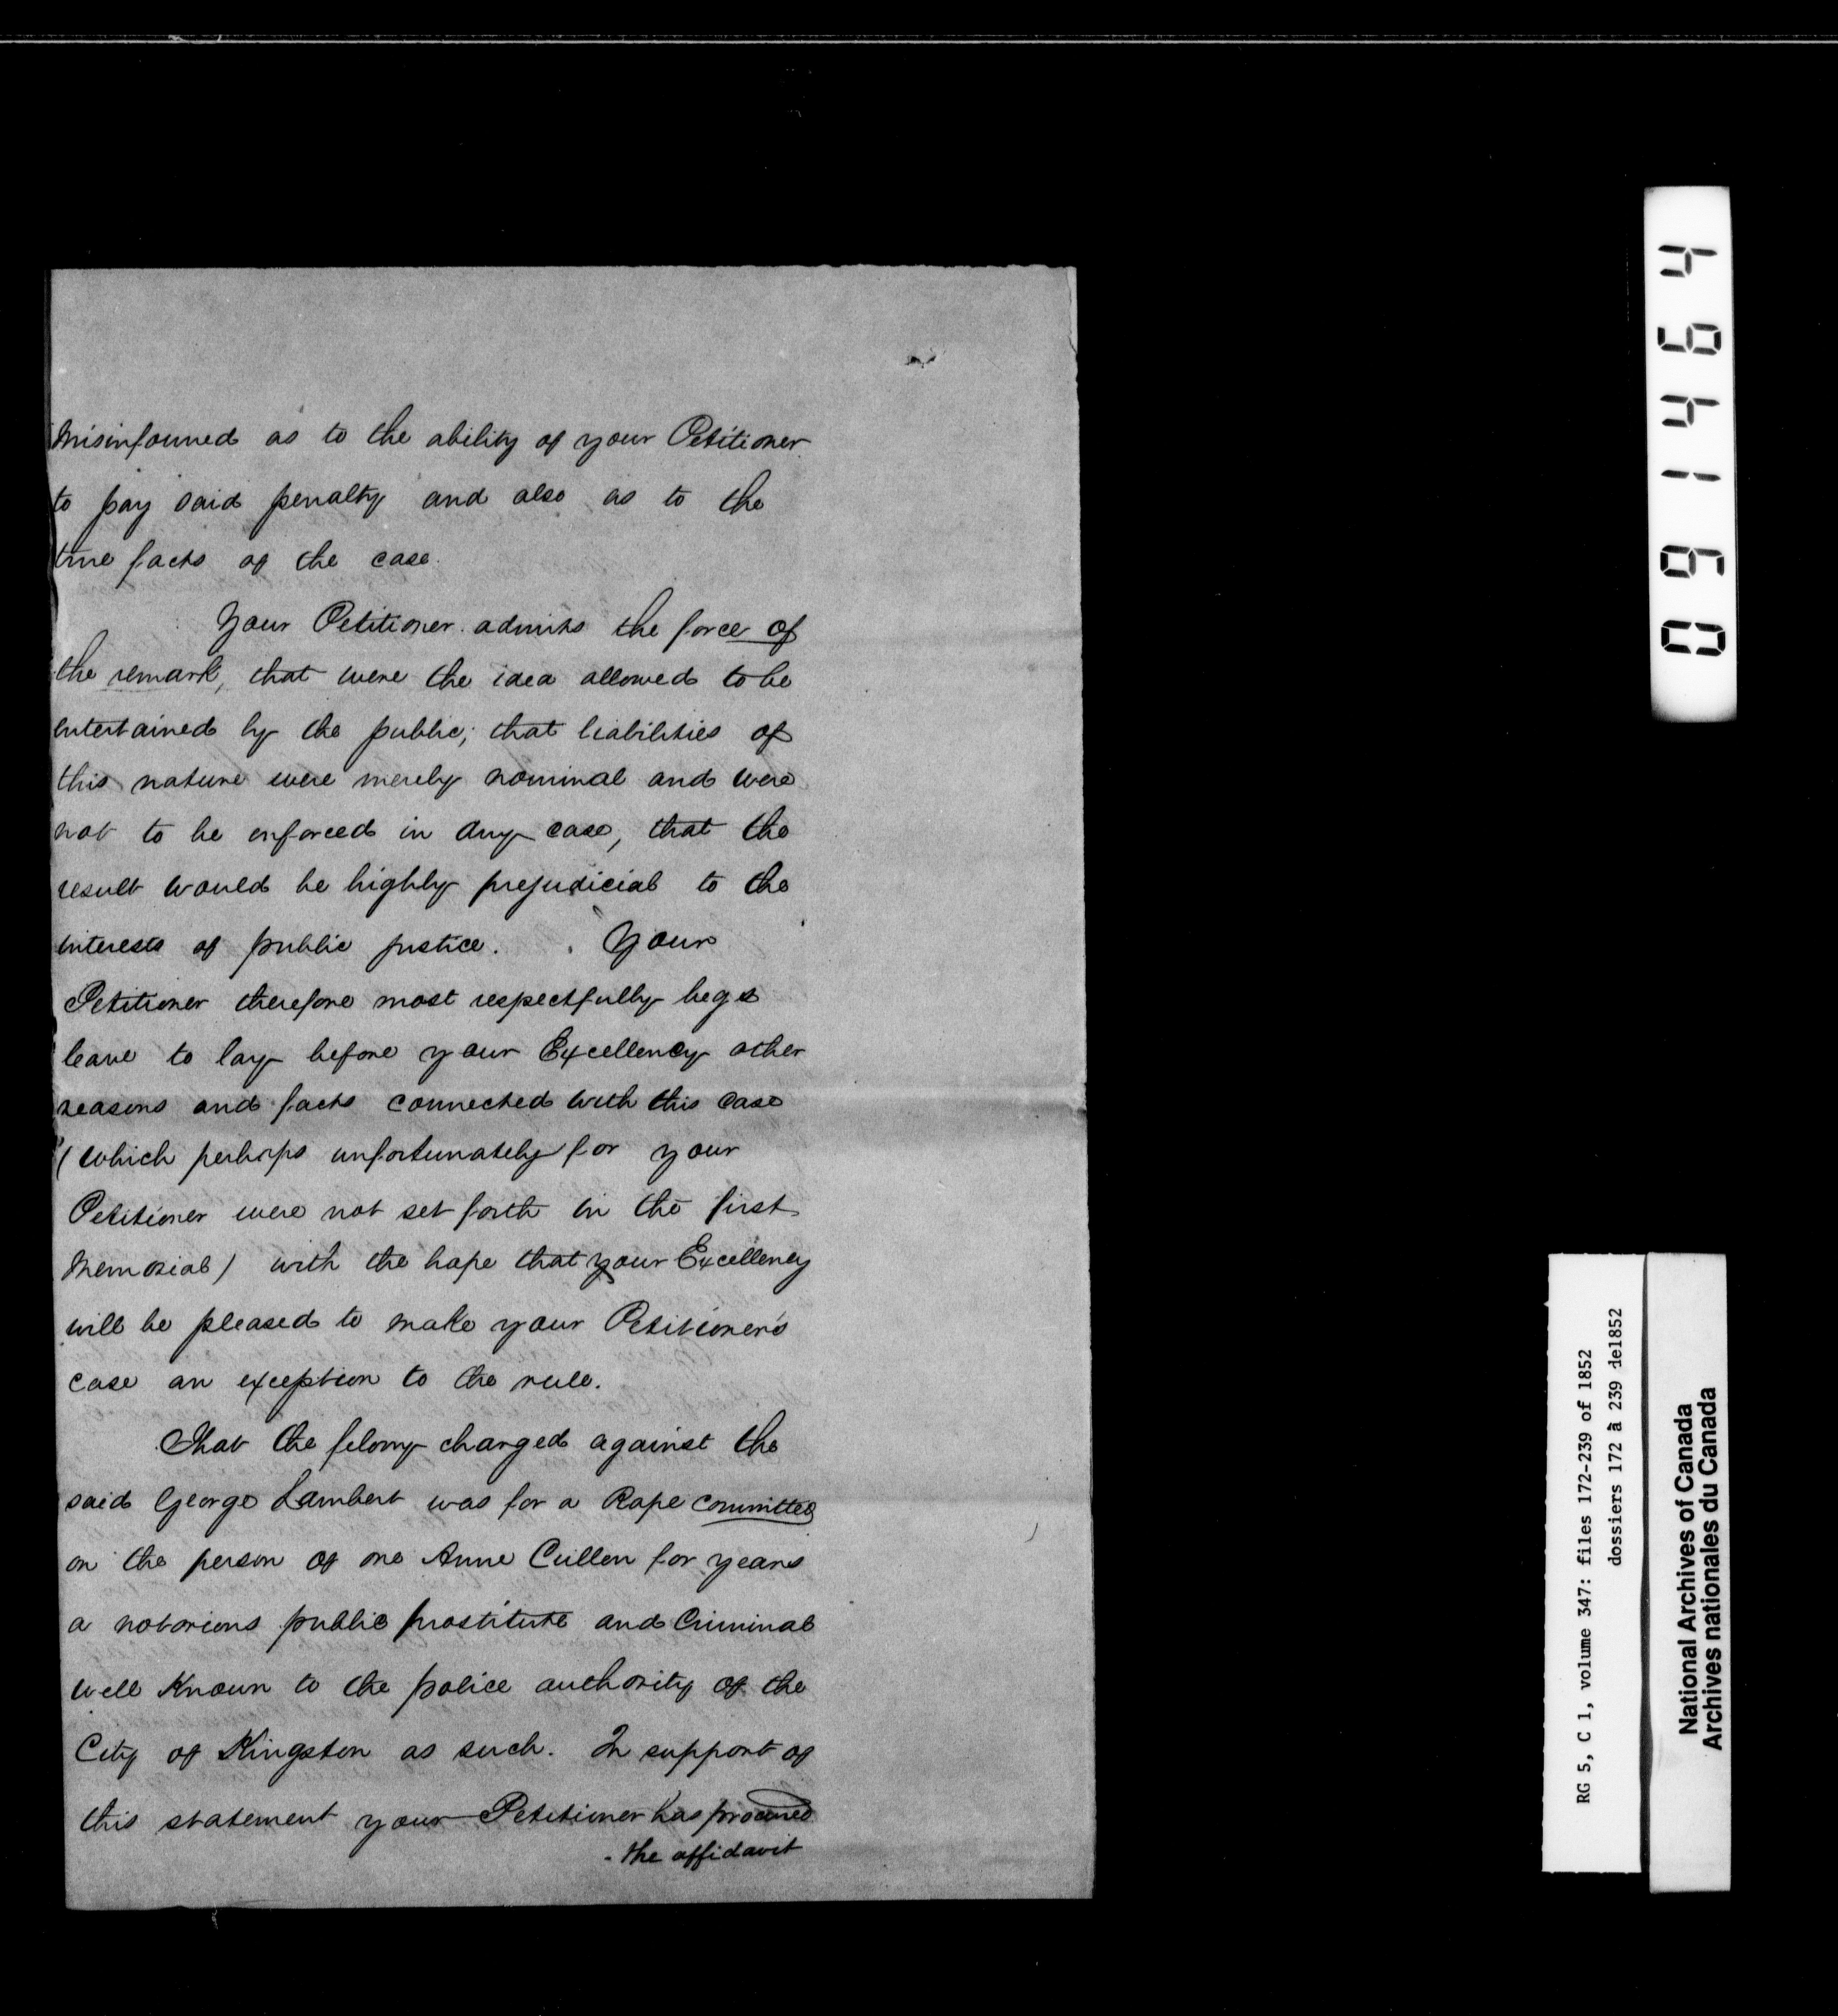 misinformed as to the ability of your Petitioner
to pay said penalty and also as to the
true facts of the case.
Your Petitioner admits the force of
the remark, that were the idea allowed to be
entertained by the public; that liabilities of
this nature were merely nominal and were
not to be enforced in any case, that the
result would be highly prejudicial to the
interests of public justice. Your
Petitioner therefore most respectfully begs
leave to lay before your Excellency other
reasons and facts connected with this case
(which perhaps unfortunately for your
Petitioner were not set forth in the first
Memorial) with the hope that your Excellency
will be pleased to make your Petitioner's
case an exception to the rule.
That the felony charged against the
said George Lambert was for a Rape committed
on the person of one Anne Cullen for years
a notorious public prostitute and Criminal
well Known to the police authority of the
City of Kingston as such. In support of
this statement your Petitioner has procured
- the affidavit
091464
RG 5, C 1, volume 347: files 172-239 of 1852
dossiers 172 à 239 de1852
National Archives of Canada
Archives nationales du Canada